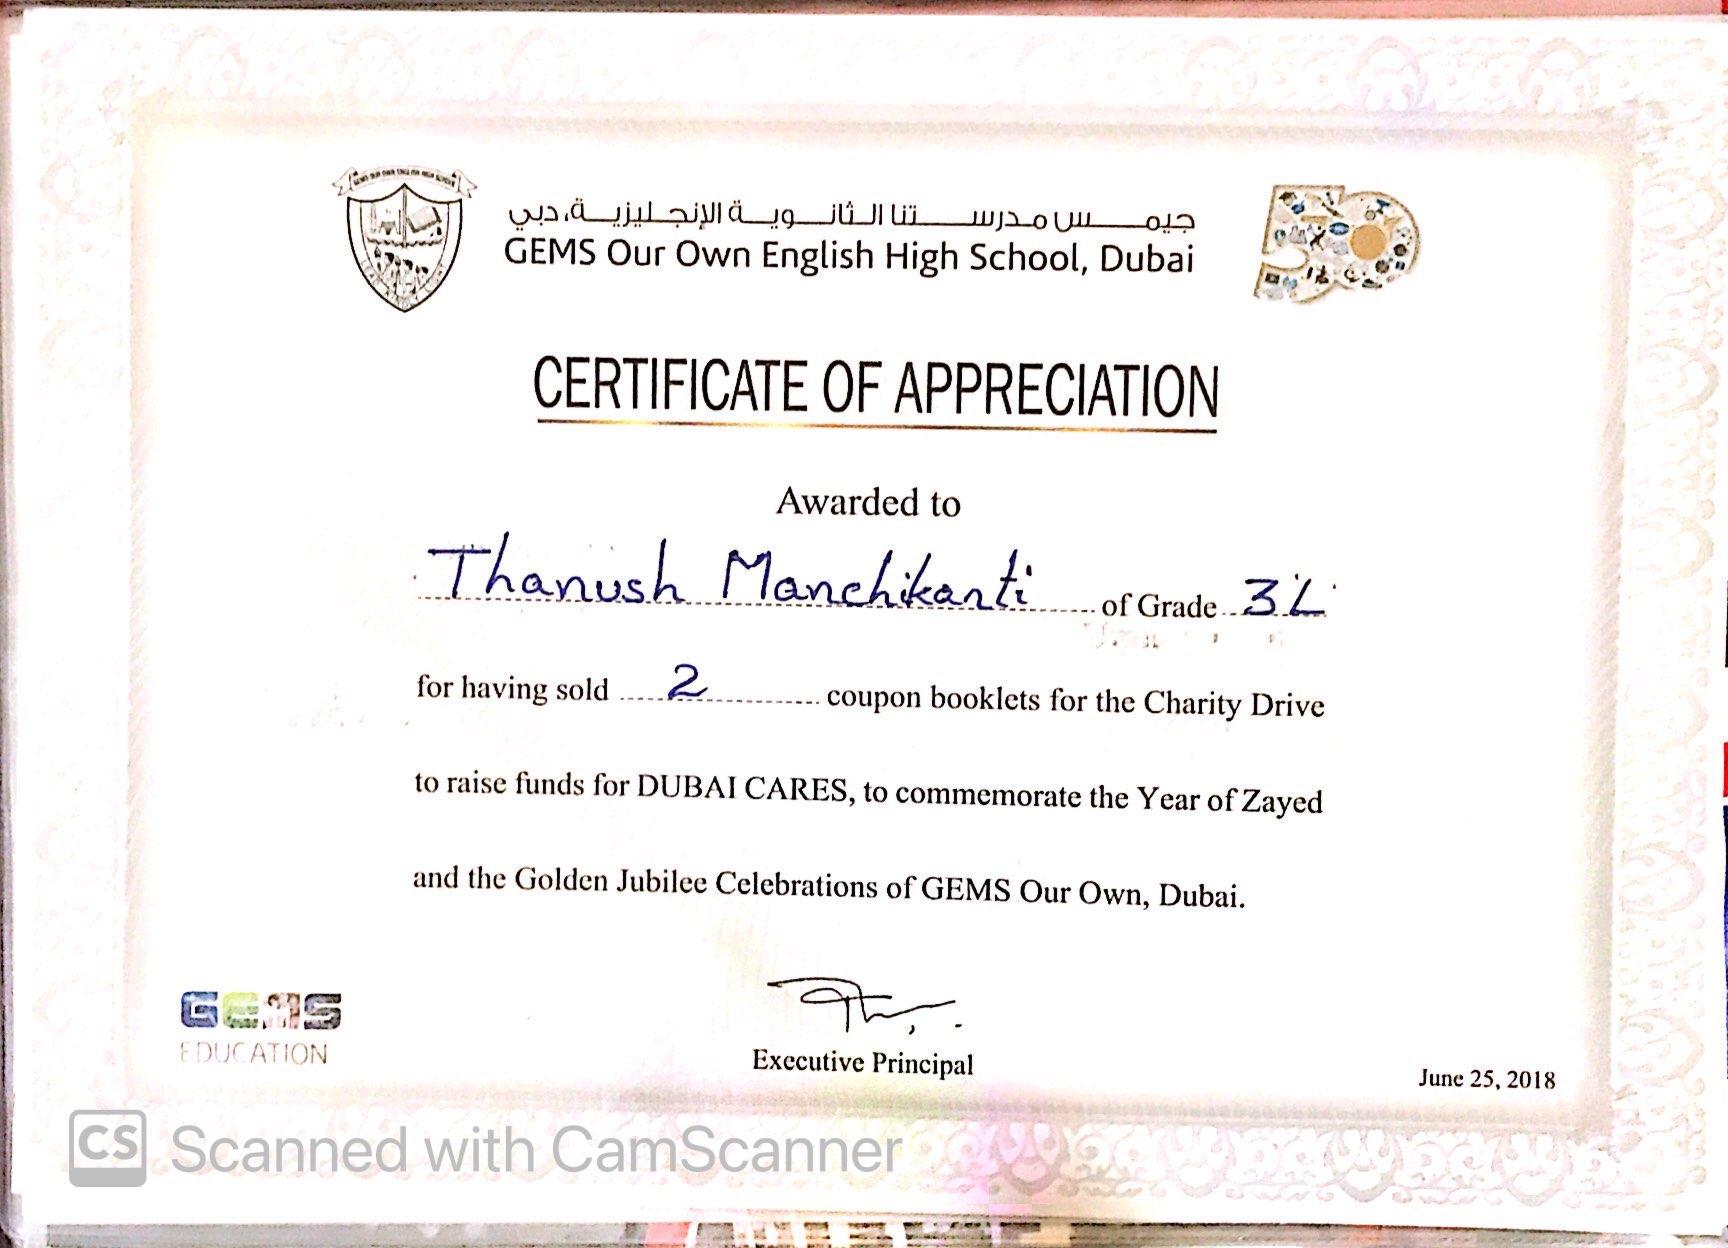 GEMS OUR OWN ENGLISH HIGH SCHOOL
جيمس مدرستنا الثانوية الإنجليزية، دبي
GEMS Our Own English High School, Dubai
50
CERTIFICATE OF APPRECIATION
Awarded to
Thanush Manchikanti of Grade 3L
for having sold 2 coupon booklets for the Charity Drive
to raise funds for DUBAI CARES, to commemorate the Year of Zayed
and the Golden Jubilee Celebrations of GEMS Our Own, Dubai.
GEMS
EDUCATION
Executive Principal
June 25, 2018
CS Scanned with CamScanner